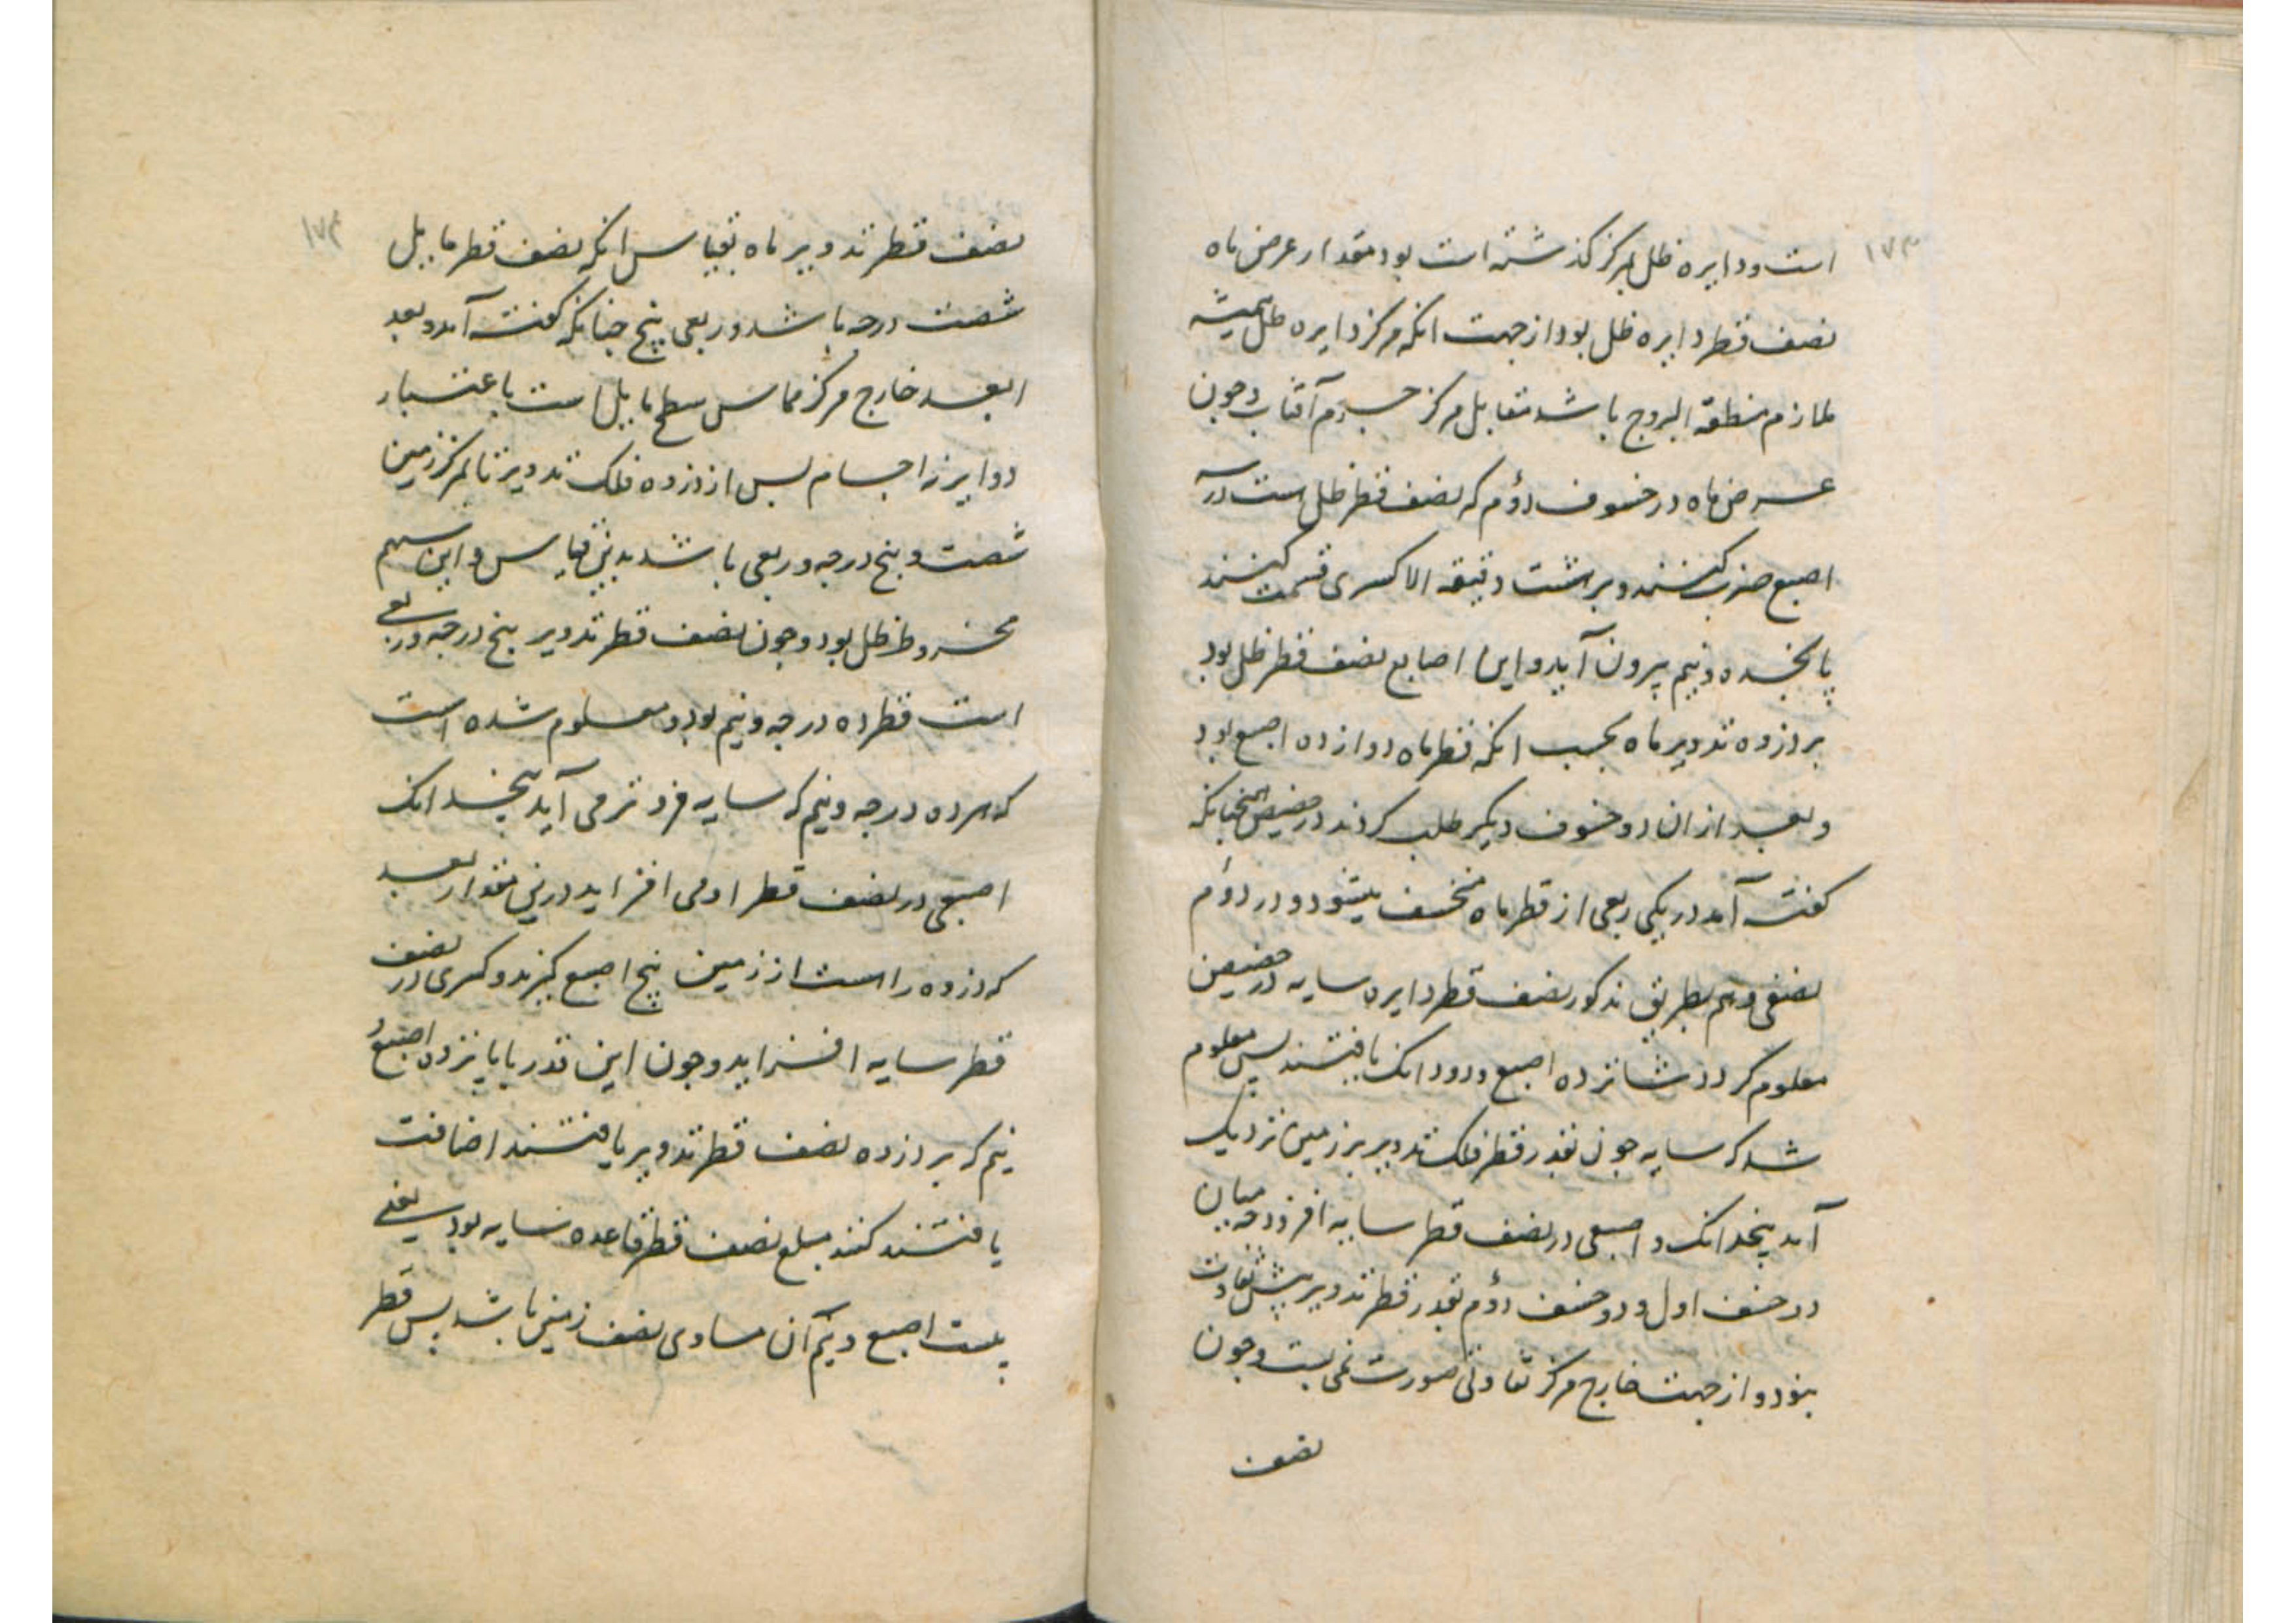 ۱۷۳
است ودایره ظل بمرکز کذشته است بود مقدار عرض ماه
نصف قطر دایره ظل بود از جهت انکه مرکز دایره ظل همیشه
ملازم منطقه البروج باشد مقابل مرکز جرم آفتاب وچون
عرض ماه در خسوف دؤم که نصف قطر ظل است در
اصبع ضرب کنند وبر هشت دقیقه الا کسری قسمت کنند
پانجده ونیم بیرون آید واین اصابع نصف قطر ظل بود
بر ذروه تدویر ماه بحسب انکه قطر ماه دوازده اصبع بود
وبعد از ان دو خسوف دیکر طلب کردند در حضیض همچنانکه
کفته آمد در یکی ربعی از قطر ماه منخسف میشود ودر دوم
نصفی وهم بطریق مذکور نصف قطر دایره سایه در حضیض
معلوم کردند شانزده اصبع ودو دانک یافتند پس معلوم
شد که سایه چون بقدر قطر فلک تدویر بر زمین نزدیک
آمد پنجدانک واصبعی در نصف قطر سایه افزود چه میان
دو خسف اول ودو خسف دؤم بقدر قطر تدویر بیش تفاوت
نبود واز جهت خارج مرکز تفاوتی صورت نمی بست وچون
نصف
۱۷۴
نصف قطر تدویر ماه بقیاس انکه نصف قطر مایل
شصت درجه باشد وربعی پنج چنانکه کفته آمد وبعد
ابعد خارج مرکز مماس سطح مایل است باعتبار
دوایر نه اجسام پس از ذروه فلک تدویر تا بمرکز زمین
شصت وپنج درجه وربعی باشد بدین قیاس واین سهم
مخروط ظل بود وچون نصف قطر تدویر پنج درجه وربعی
است قطر ده درجه ونیم بود ومعلوم شده است
که هر ده درجه ونیم که سایه فرو تر می آید پنجدانک
اصبعی در نصف قطر او می افزاید درین مقدار بعد
که ذروه راست از زمین پنج اصبع کیرند وکسری در نصف
قطر سایه افزاید وچون این قدر با پانزده اصبع و
نیم که بر ذروه نصف قطر تدویر یافتند اضافت
یافتند کنند مبلغ نصف قطر قاعده سایه بود یعنی
بیست اصبع ونیم آن مساوی نصف زمین باشد پس قطر